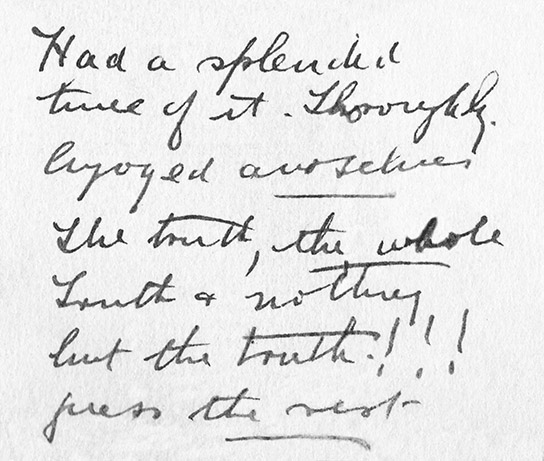 Had a splendid
time of it. Thoroughly.
Enjoyed ourselves
The truth, the whole
Truth & nothing
but the truth.!!!!
guess the rest